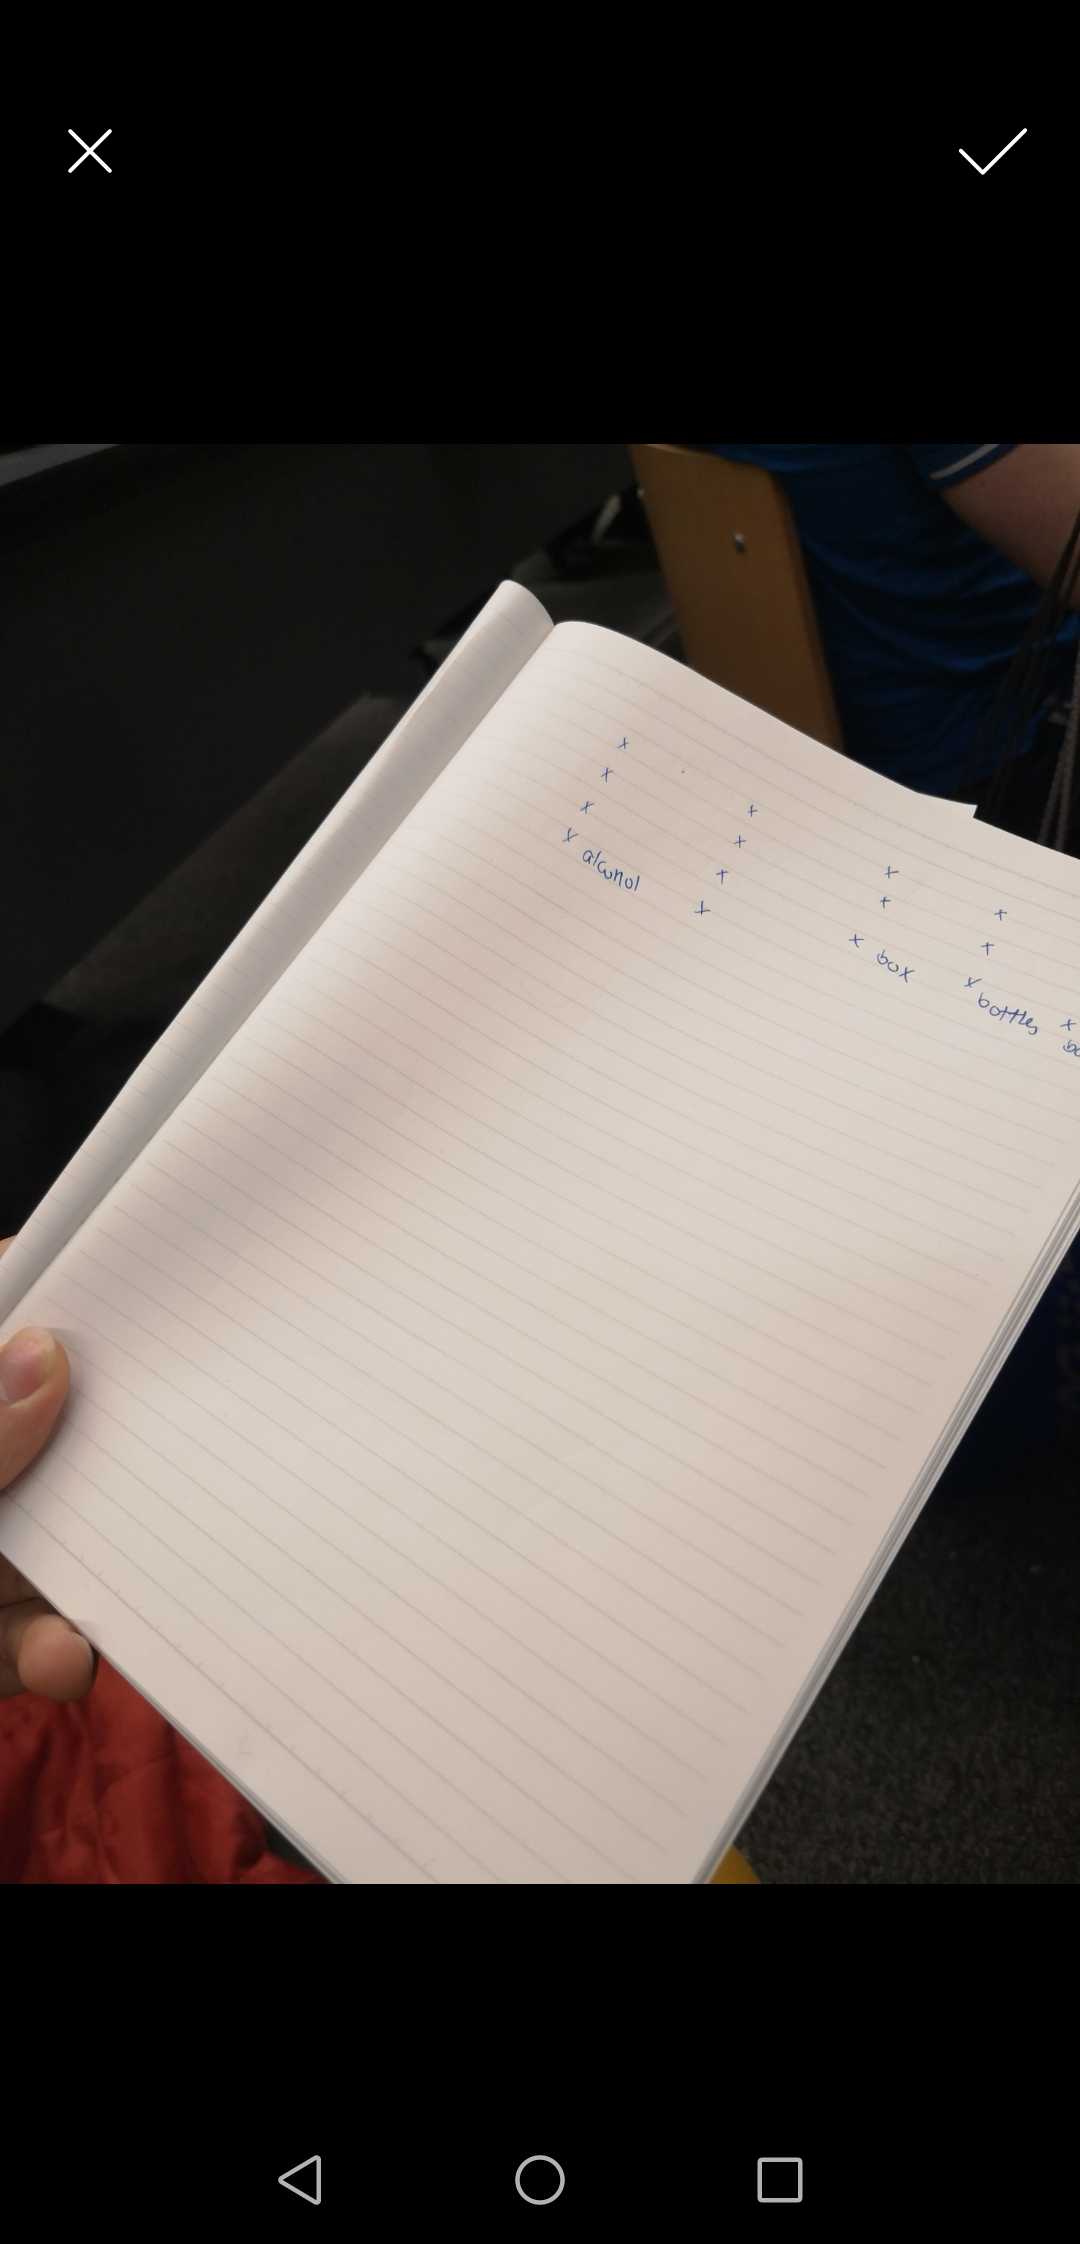 x
x
x x
x alcohol x
x x
x x x
x box x
x bottles x